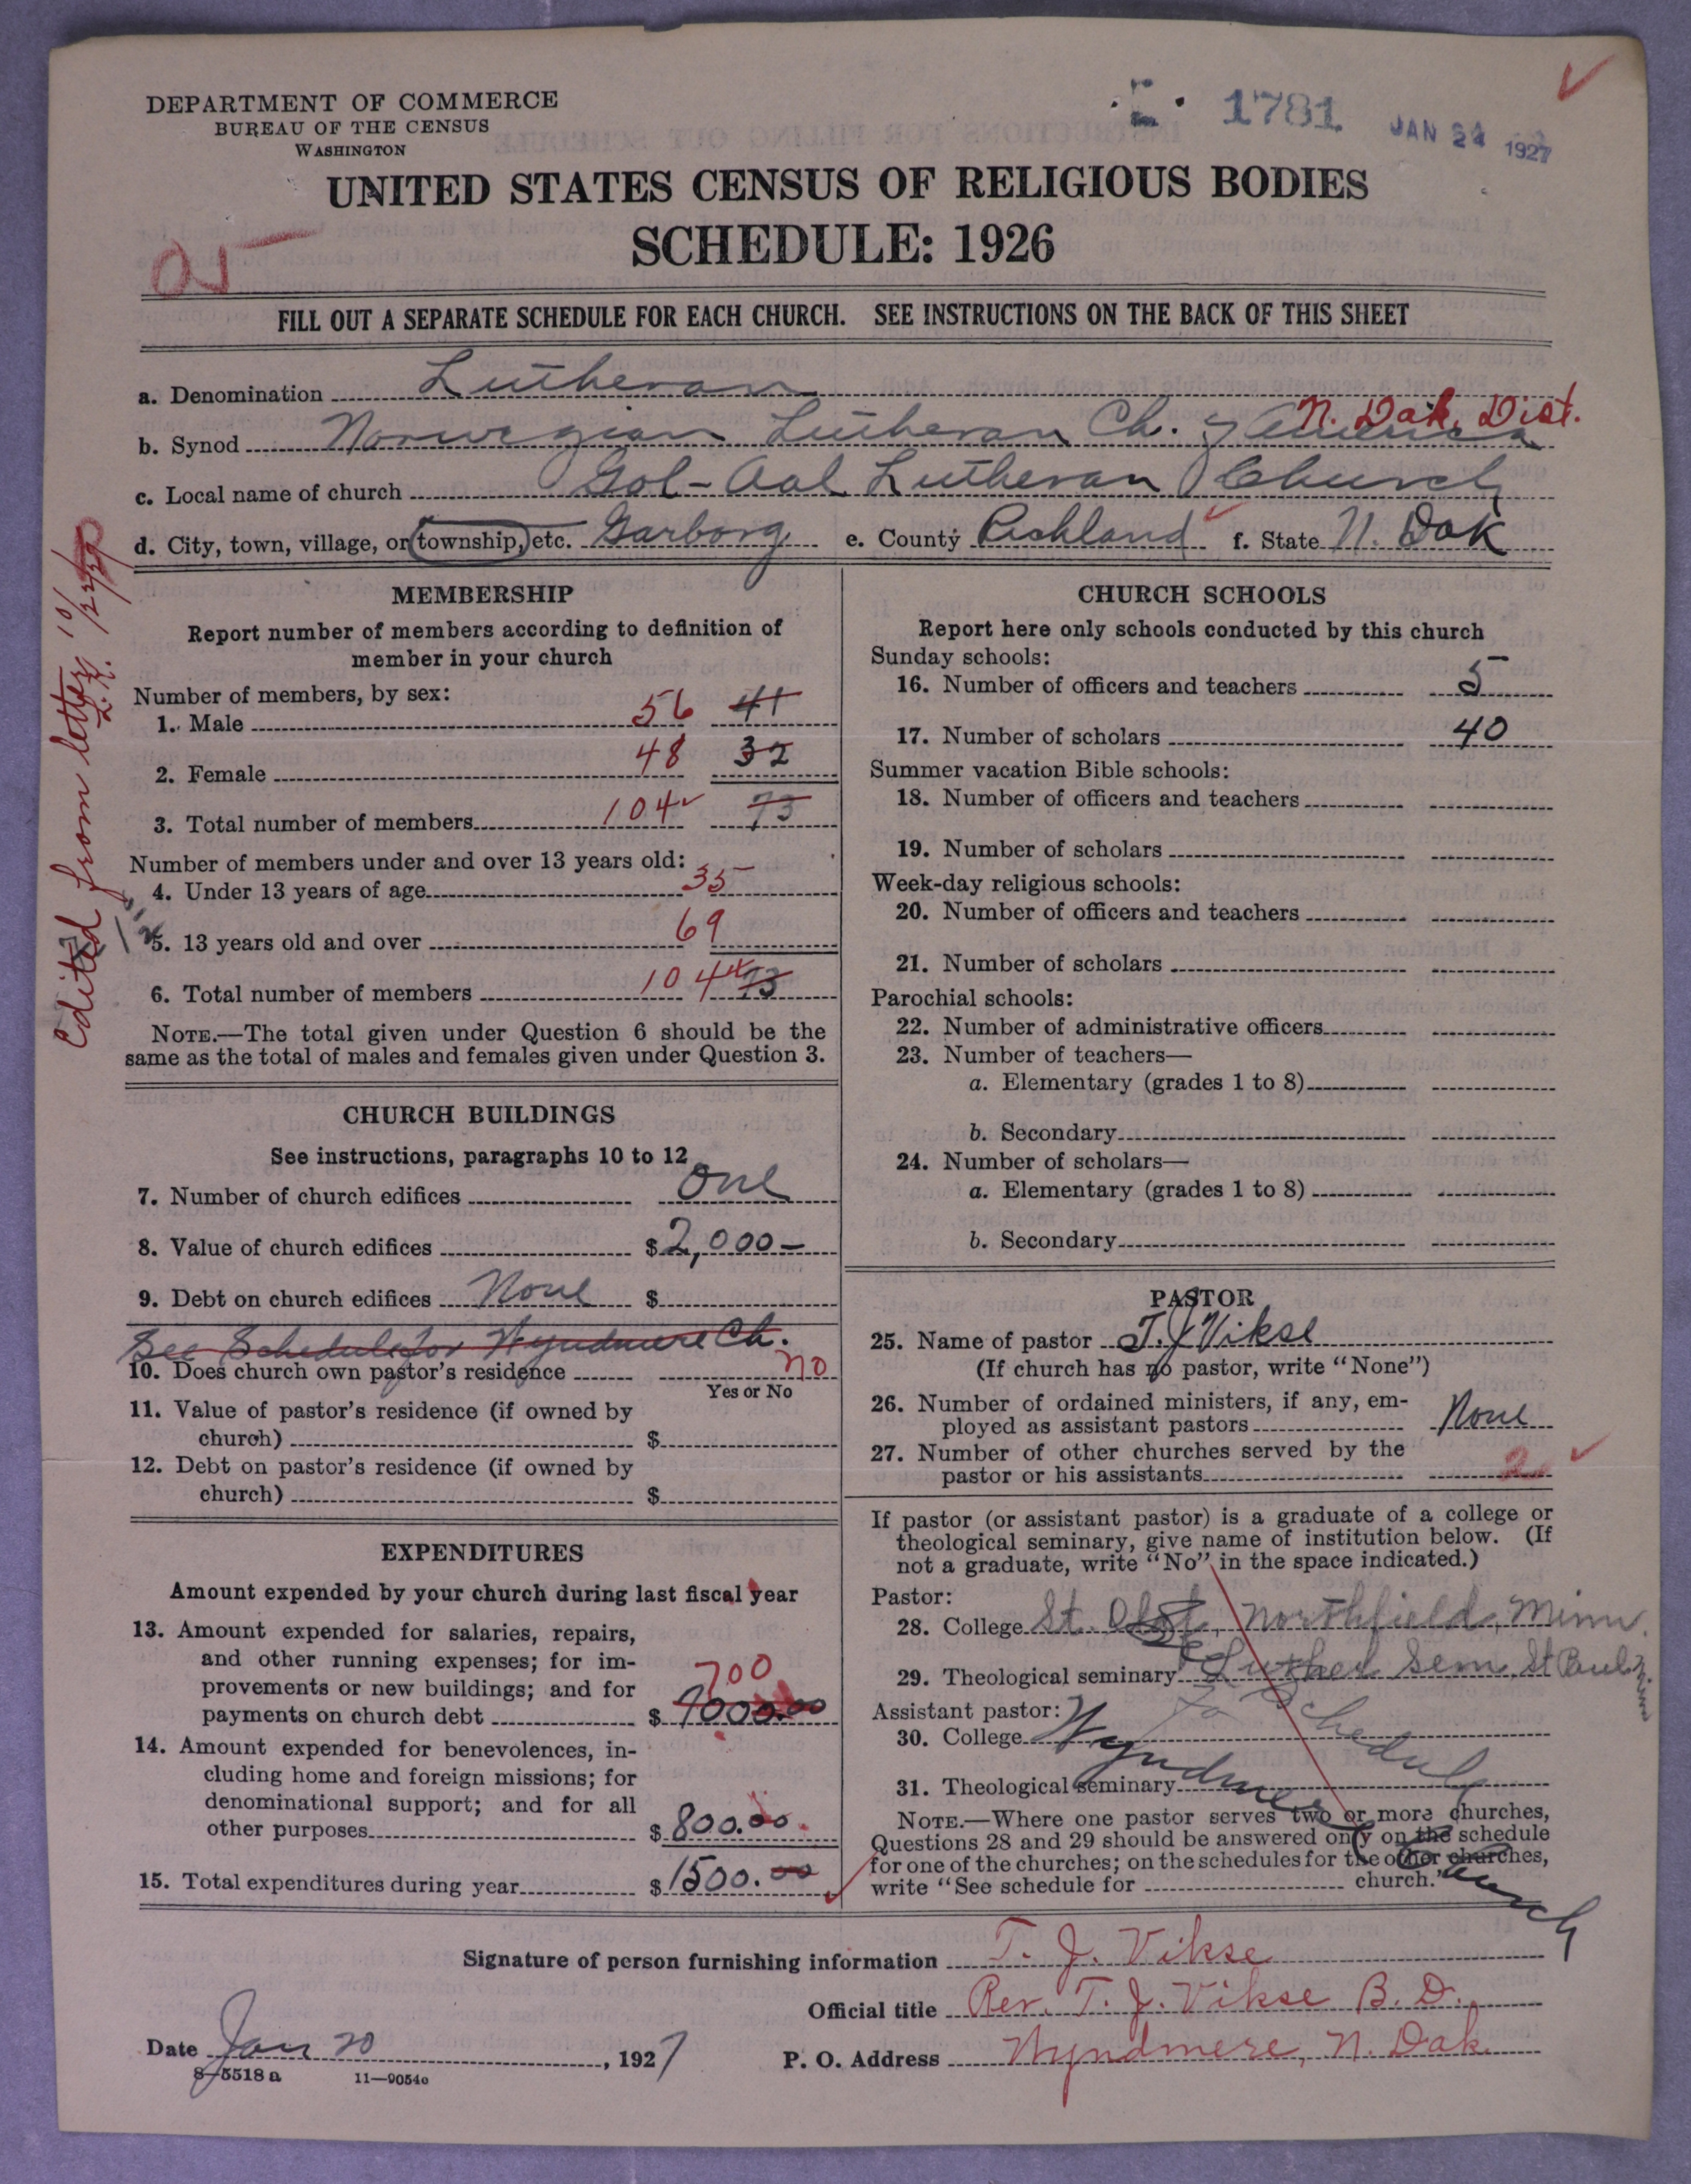 DEPARTMENT OF COMMERCE
BUREAU OF THE CENSUS
WASHINGTON
1781
JAN 24 1927
UNITED STATES CENSUS OF RELIGIOUS BODIES
SCHEDULE: 1926
FILL OUT A SEPARATE SCHEDULE FOR EACH CHURCH. SEE INSTRUCTIONS ON THE BACK OF THIS SHEET
a. Denomination Lutheran
N. Dak. Dist.
b. Synod Norwegian Lutheran Ch. of America
c. Local name of church Gol-Aal Lutheran Church
d. City, town, village, or township, etc. Garborg e. County Richland f. State N. Dak
Edited from letter 10/22/29 L.K.
MEMBERSHIP
Report number of members according to definition of
member in your church
Number of members, by sex:
1. Male 56 41
2. Female 48 32
3. Total number of members 104 73
Number of members under and over 13 years old:
4. Under 13 years of age 35
5. 13 years old and over 69
6. Total number of members 104 73
NOTE.—The total given under Question 6 should be the
same as the total of males and females given under Question 3.
CHURCH BUILDINGS
See instructions, paragraphs 10 to 12
7. Number of church edifices One
8. Value of church edifices $ 2,000—
9. Debt on church edifices None $
See Schedule for Wyndmere Ch.
10. Does church own pastor's residence no
Yes or No
11. Value of pastor's residence (if owned by
church) $
12. Debt on pastor's residence (if owned by
church) $
EXPENDITURES
Amount expended by your church during last fiscal year
13. Amount expended for salaries, repairs,
and other running expenses; for im-
provements or new buildings; and for 700
payments on church debt $ 7000.00
14. Amount expended for benevolences, in-
cluding home and foreign missions; for
denominational support; and for all
other purposes $ 800.00.
15. Total expenditures during year $ 1500.00
CHURCH SCHOOLS
Report here only schools conducted by this church
Sunday schools:
16. Number of officers and teachers 5
17. Number of scholars 40
Summer vacation Bible schools:
18. Number of officers and teachers
19. Number of scholars
Week-day religious schools:
20. Number of officers and teachers
21. Number of scholars
Parochial schools:
22. Number of administrative officers
23. Number of teachers—
a. Elementary (grades 1 to 8)
b. Secondary
24. Number of scholars—
a. Elementary (grades 1 to 8)
b. Secondary
PASTOR
25. Name of pastor T. J. Vikse
(If church has no pastor, write "None")
26. Number of ordained ministers, if any, em-
ployed as assistant pastors None
27. Number of other churches served by the
pastor or his assistants 2
If pastor (or assistant pastor) is a graduate of a college or
theological seminary, give name of institution below. (If
not a graduate, write "No" in the space indicated.)
Pastor:
28. College St. Olaf, Northfield, Minn.
29. Theological seminary Luther Sem. St Paul Minn
Assistant pastor:
30. College
Schedule
Wyndmere
31. Theological seminary
NOTE.—Where one pastor serves two or more churches,
Questions 28 and 29 should be answered only on the schedule
for one of the churches; on the schedules for the other churches,
write "See schedule for church."
Church
Signature of person furnishing information T. J. Vikse
Official title Rev. T. J. Vikse B. D.
Date Jan 20, 1927 P. O. Address Wyndmere, N. Dak.
8—5518 a 11—9054c